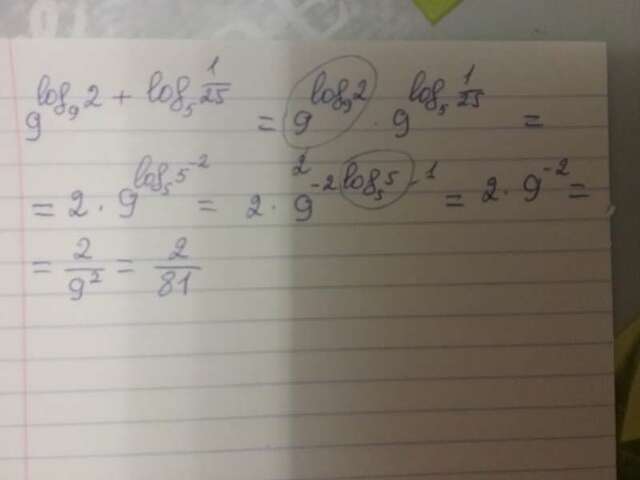 9^{log_9 2 + log_5 \frac{1}{25}} = 9^{log_9 2} · 9^{log_5 \frac{1}{25}} =
= 2 · 9^{log_5 5^{-2}} = 2 · 9^{-2 log_5 5} = 2 · 9^{-2} =
= \frac{2}{9^2} = \frac{2}{81}